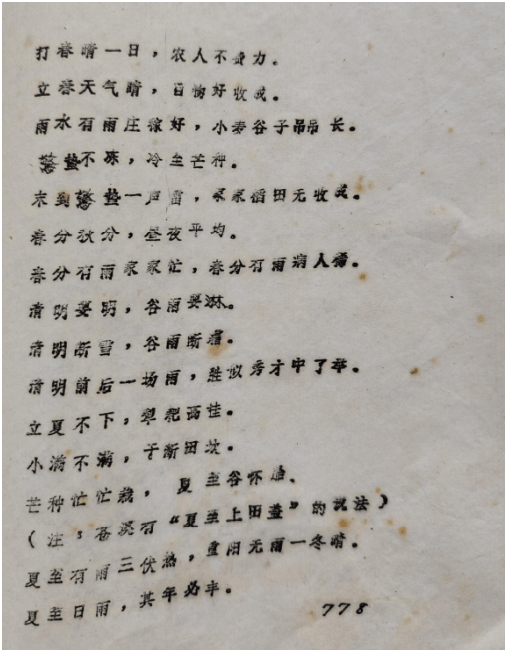 打春晴一日，农人不费力。
立春天气晴，百物好收成。
雨水有雨庄稼好，小麦谷子吊吊长。
惊蛰不冻，冷至芒种。
未到惊蛰一声雷，家家稻田无收成。
春分秋分，昼夜平均。
春分有雨家家忙，春分有雨病人稀。
清明要明，谷雨要淋。
清明断雪，谷雨断霜。
清明前后一场雨，胜似秀才中了举。
立夏不下，犁耙高挂。
小满不满，干断田坎。
芒种忙忙栽，夏至谷怀胎。
（注：苍溪有“夏至上田盖”的说法）
夏至有雨三伏热，重阳无雨一冬晴。
夏至日雨，其年必丰。
778